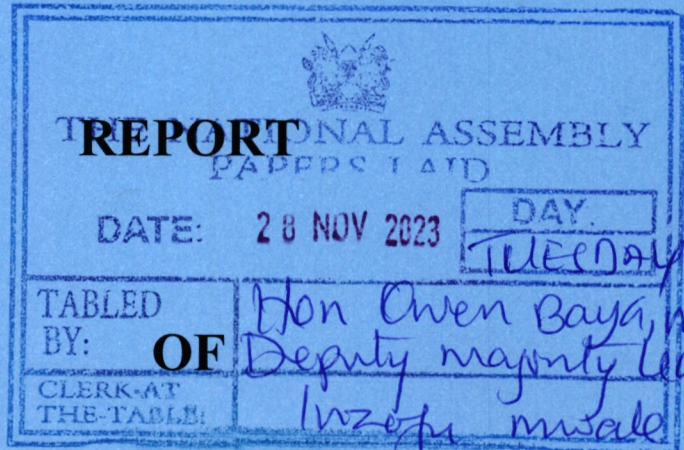 THE NATIONAL ASSEMBLY
REPORT
PAPERS LAID
DATE: 28 NOV 2023
DAY.
TUESDAY
TABLED BY:
Hon Owen Baya,
OF
Deputy majority
CLERK-AT THE-TABLE:
mwale